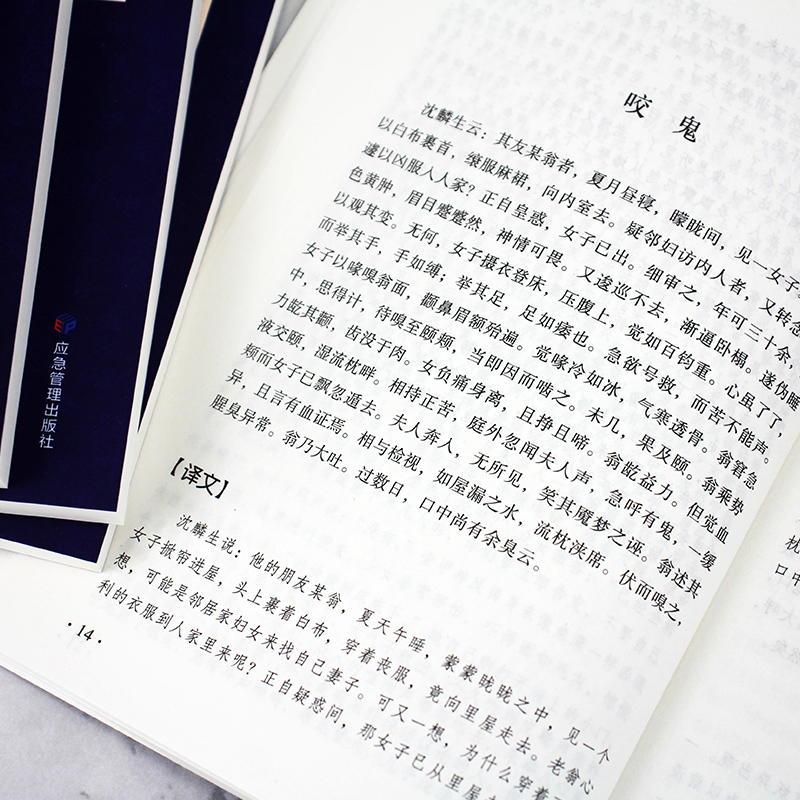 应急管理出版社
咬 鬼
沈麟生云：其友某翁者，夏月昼寝，朦胧间，见一女子
以白布裹首，缞服麻裙，向内室去。疑邻妇访内人者，又转念
遽以凶服入人家？正自皇惑，女子已出。细审之，年可三十余，
色黄肿，眉目蹙蹙然，神情可畏。又逡巡不去，渐逼卧榻。遂伪睡
以观其变。无何，女子摄衣登床，压腹上，觉如百钧重。心虽了了，
而举其手，手如缚；举其足，足如痿也。急欲号救，而苦不能声。
女子以喙嗅翁面，颧鼻眉额殆遍。觉喙冷如冰，气寒透骨。翁窘急
中，思得计，待嗅至颐颊，当即因而啮之。未几，果及颐。翁乘势
力龁其颧，齿没于肉。女负痛身离，且挣且啼。翁龁益力。但觉血
液交颐，湿流枕畔。相持正苦，庭外忽闻夫人声，急呼有鬼，一缓
颊而女子已飘忽遁去。夫人奔入，无所见，笑其魇梦之诬。翁述其
异，且言有血证焉。相与检视，如屋漏之水，流枕浃席。伏而嗅之，
腥臭异常。翁乃大吐。过数日，口中尚有余臭云。
【译文】
沈麟生说：他的朋友某翁，夏天午睡，蒙蒙眬眬之中，见一个
女子掀帘进屋，头上裹着白布，穿着丧服，竟向里屋走去。老翁心
想，可能是邻居家妇女来找自己妻子。可又一想，为什么穿着
利的衣服到人家里来呢？正自疑惑间，那女子已从里屋
·14·
枕
口中